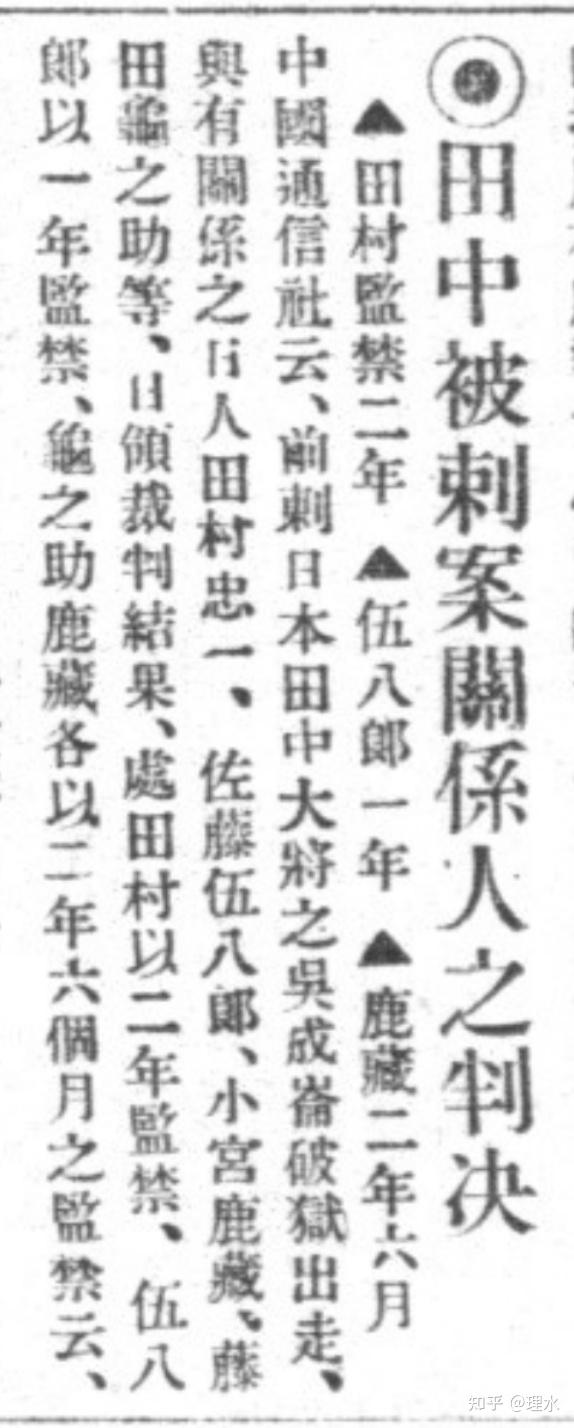 ◉田中被刺案關係人之判決
▲田村監禁二年 ▲伍八郎一年 ▲鹿藏二年六月
中國通信社云、前刺日本田中大將之吳成崙破獄出走、
與有關係之日人田村忠一、佐藤伍八郎、小宮鹿藏、藤
田龜之助等、日領裁判結果、處田村以二年監禁、伍八
郎以一年監禁、龜之助鹿藏各以二年六個月之監禁云、
知乎 @理水